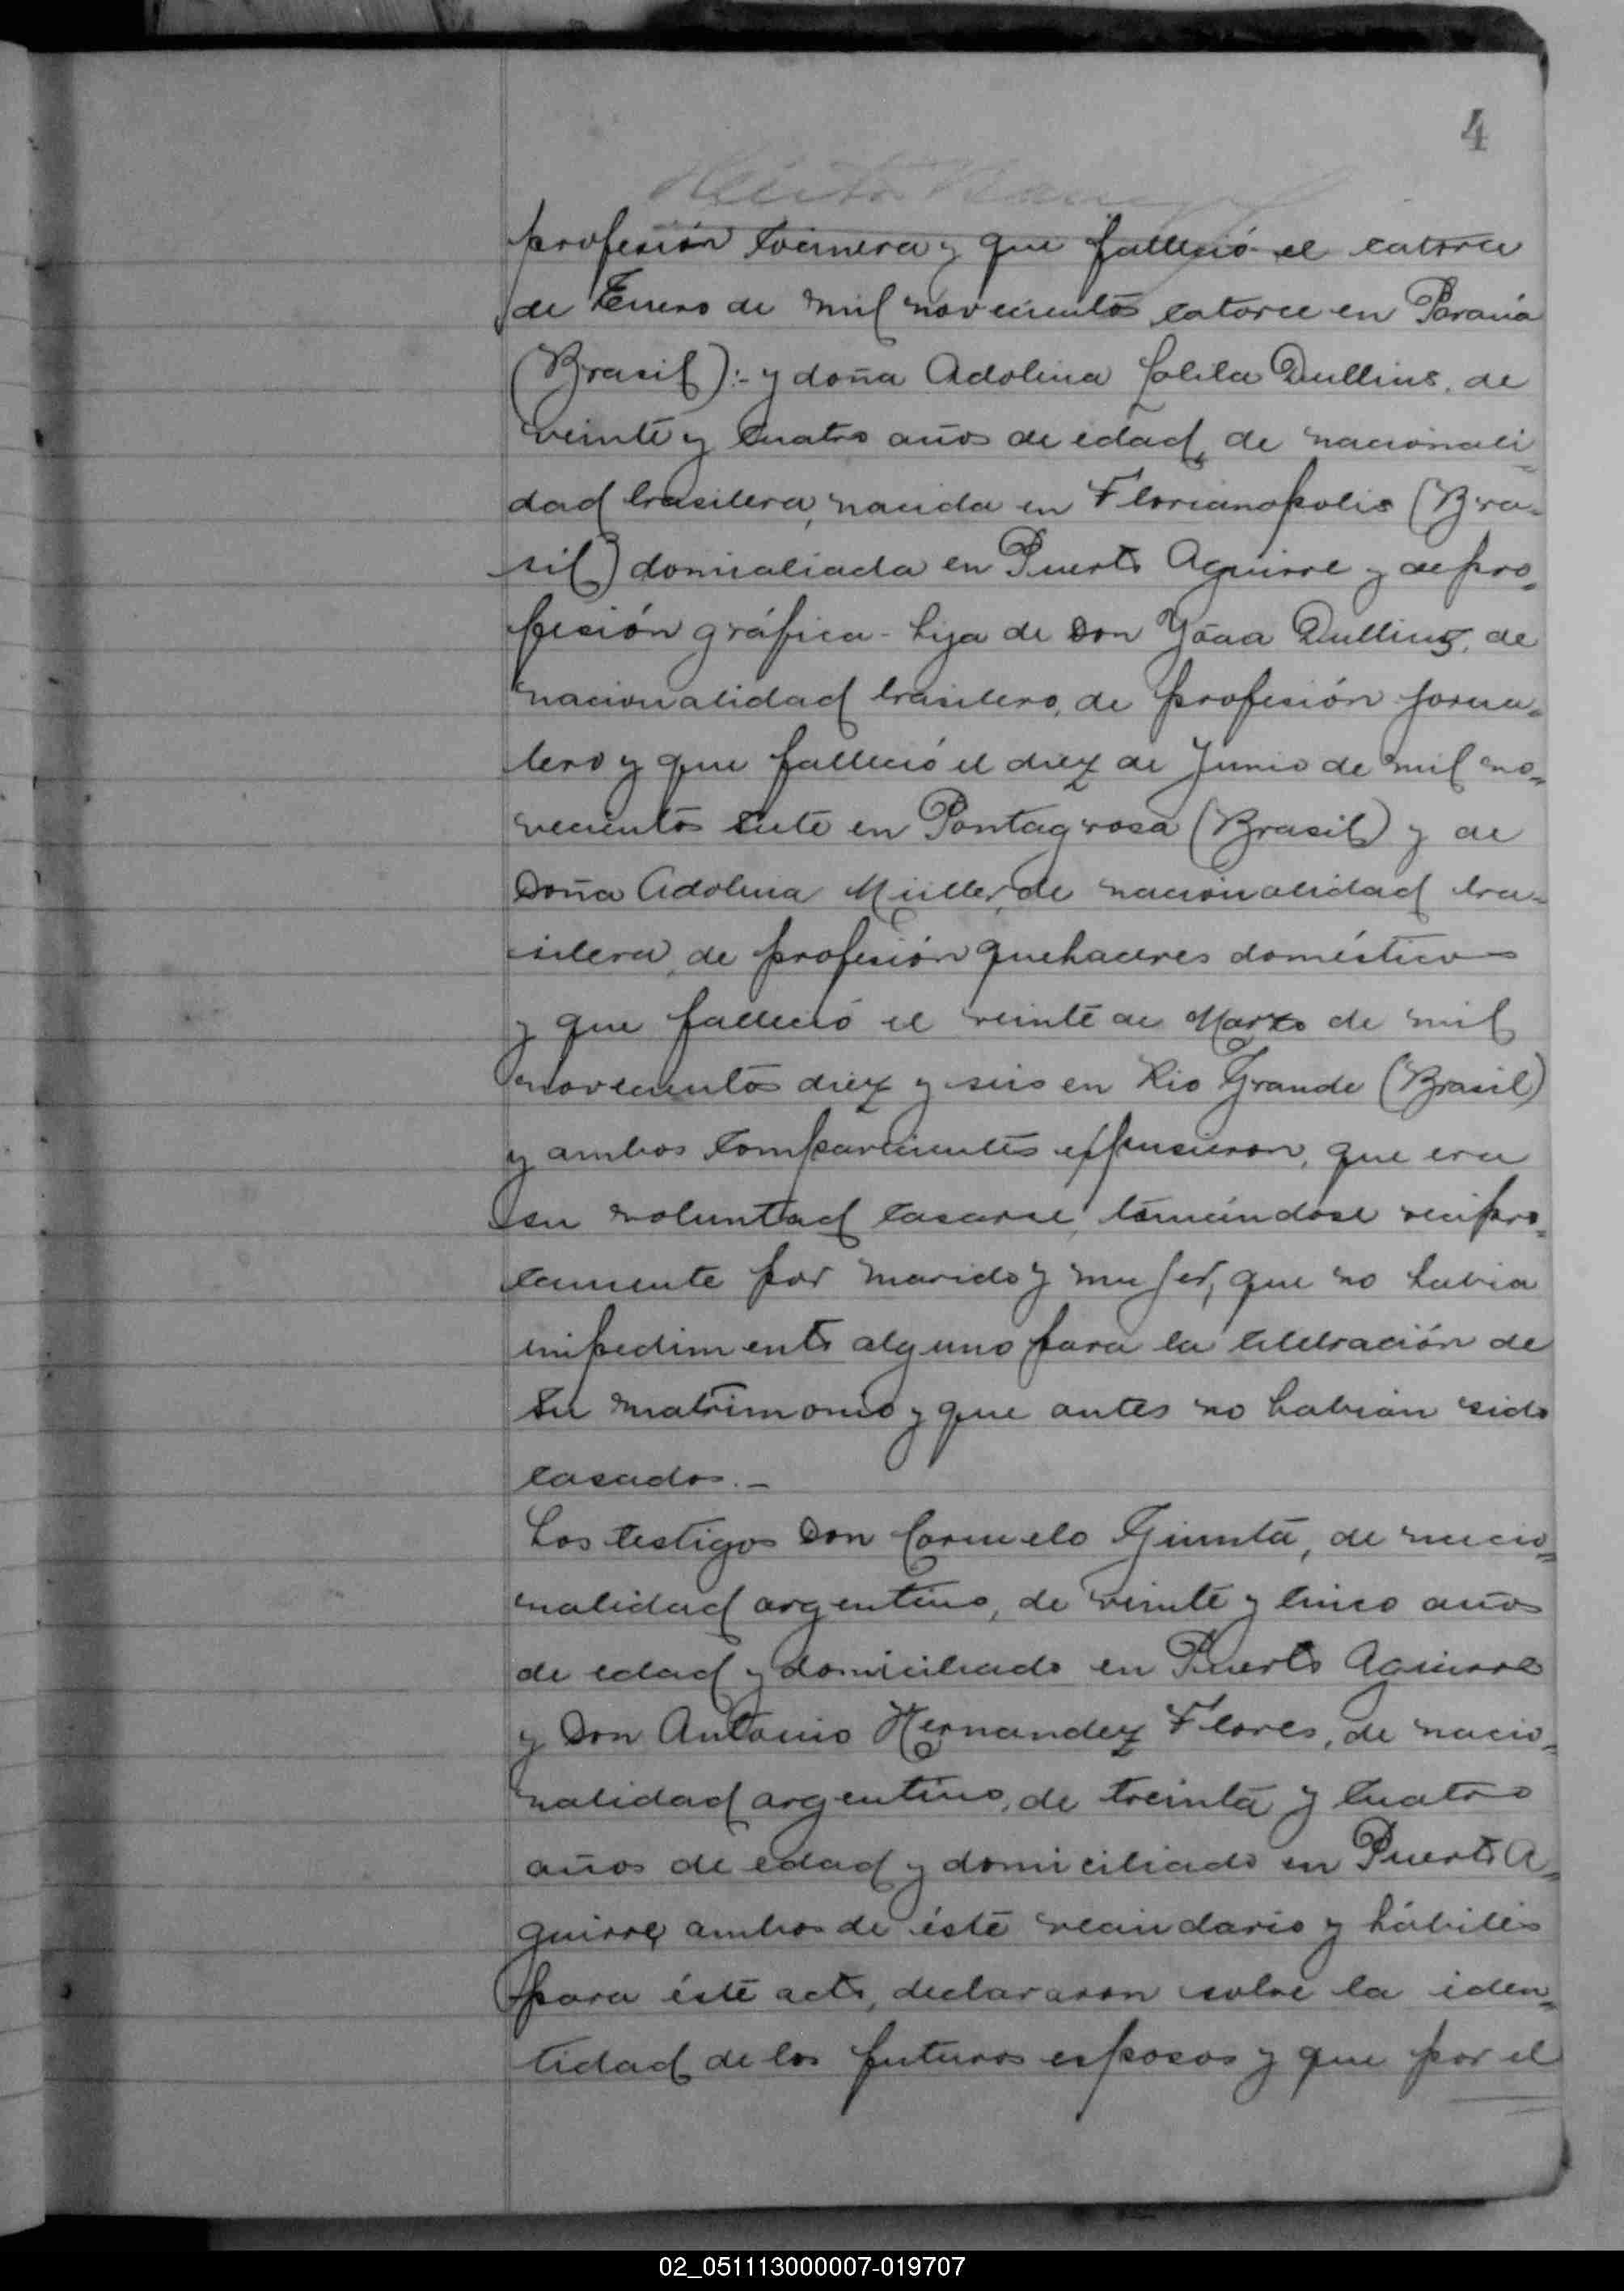 4
profesión cocinera y que falleció el catorce
de Enero de mil novecientos catorce en Paraná
(Brasil):- y doña Adolina Julila Dullius, de
veinte y cuatro años de edad, de nacionali-
dad brasilera, nacida en Florianopolis (Bra-
sil) domialiada en Puerto Aguirre y de pro-
fesión gráfica - hija de Don Yoaa Dullius, de
nacionalidad brasilero, de profesión jorna-
lero y que falleció el diez de Junio de mil no-
vecientos siete en Pontagrosa (Brasil) y de
Doña Adolina Müller, de nacionalidad bra-
silera, de profesión quehaceres domésticos
y que falleció el veinte de Marzo de mil
novecientos diez y seis en Rio Grande (Brasil)
y ambos comparecientes expusieron, que era
su voluntad casarse, tomándose recipro-
camente por marido y mujer, que no habia
impedimento alguno para la celebración de
su matrimonio y que antes no habian sido
casados.-
Los testigos Don Carmelo Giunta, de nacio-
nalidad argentino, de veinte y cinco años
de edad y domiciliado en Puerto Aguirre
y Don Antonio Hernandez Flores, de nacio-
nalidad argentino, de treinta y cuatro
años de edad y domiciliado en Puerto A-
guirre, ambos de éste vecindario y hábiles
para éste acto, declararon sobre la iden-
tidad de los futuros esposos y que por el
02_051113000007-019707